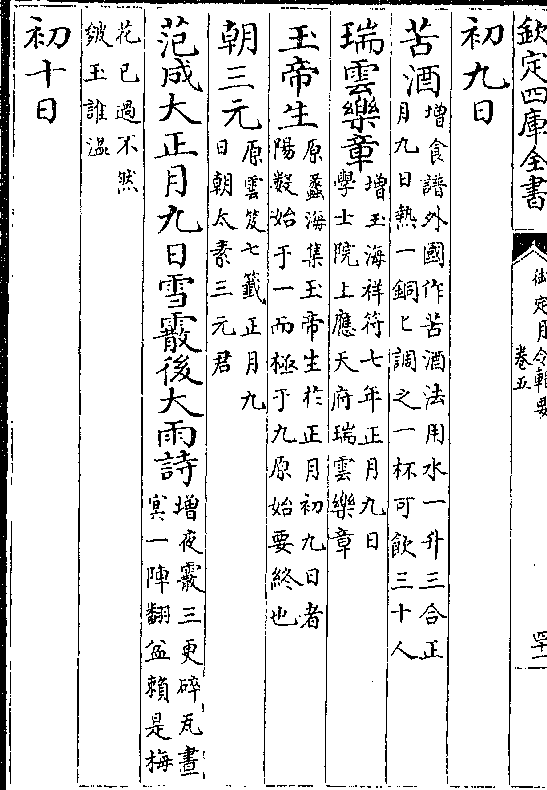 欽定四庫全書
御定月令輯要
卷五
四十二
初九日
苦酒
增食譜外國作苦酒法用水一升三合正
月九日熱一銅匕調之一杯可飲三十人
瑞雲樂章
增玉海祥符七年正月九日
學士院上應天府瑞雲樂章
玉帝生
原蠡海集玉帝生於正月初九日者
陽數始于一而極于九原始要終也
朝三元
原雲笈七籤正月九
日朝太素三元君
范成大正月九日雪霰後大雨詩
增夜霰三更碎瓦晝
㝠一陣翻盆賴是梅
花已過不然
皴玉誰温
初十日